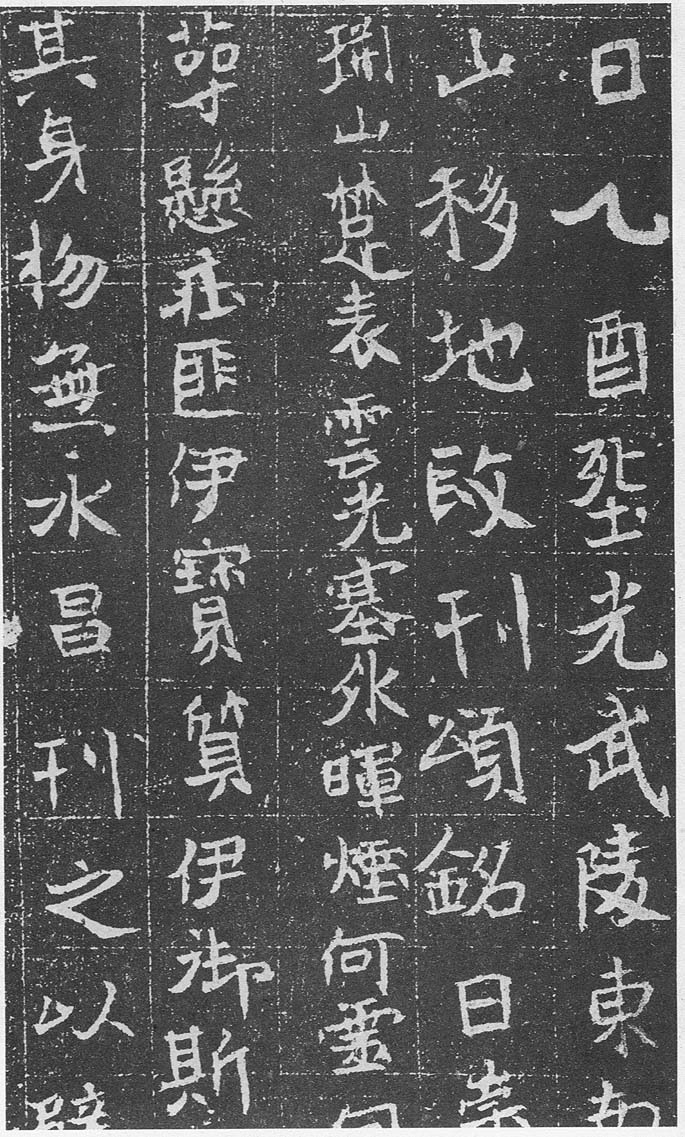 日乙酉塟光武陵東南
山移地改刊頌銘曰崇
山楚表雲光塞外暉煙何靈何
懸匪伊寶算伊御斯
其身物無永昌刊之以